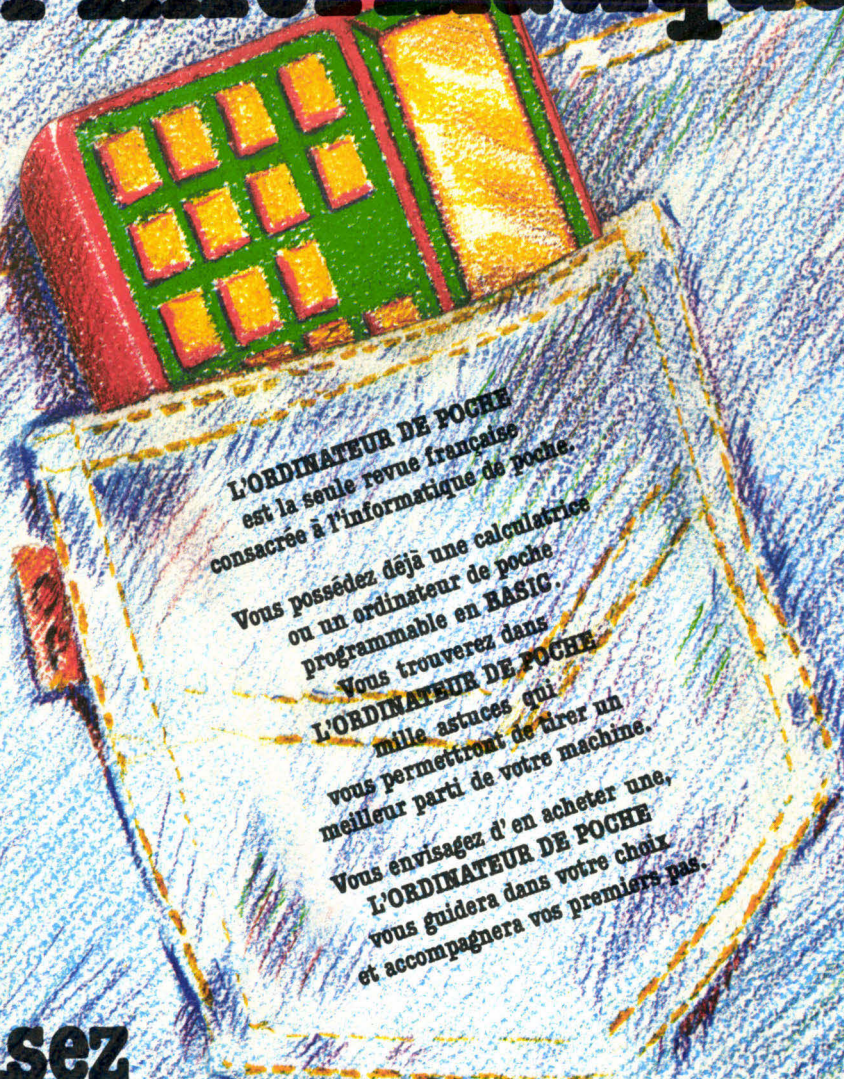 L'ORDINATEUR DE POCHE
est la seule revue française
consacrée à l'informatique de poche.
Vous possédez déjà une calculatrice
ou un ordinateur de poche
programmable en BASIC.
Vous trouverez dans
L'ORDINATEUR DE POCHE
mille astuces qui
vous permettront de tirer un
meilleur parti de votre machine.
Vous envisagez d'en acheter une,
L'ORDINATEUR DE POCHE
vous guidera dans votre choix
et accompagnera vos premiers pas.
sez